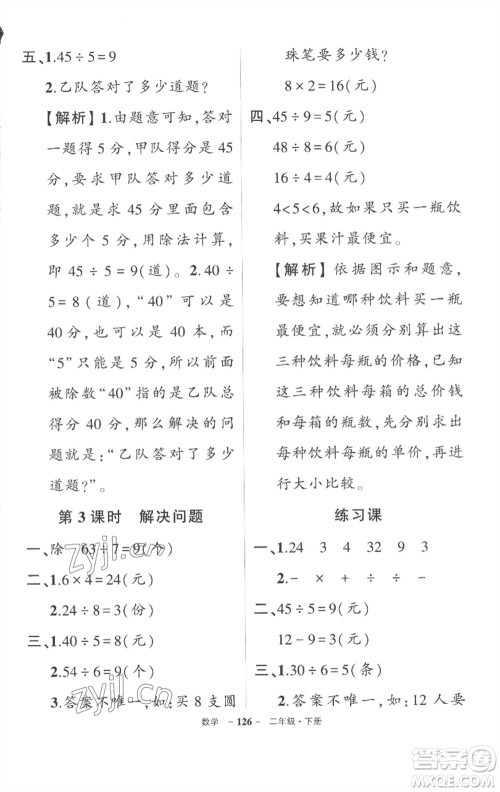 五、1.45÷5=9
2.乙队答对了多少道题?
【解析】1.由题意可知,答对
一题得5分,甲队得分是45
分,要求甲队答对多少道
题?就是求45里面包含
多少个5分,用除法计算,
即45÷5=9(道)。2.40÷
5=8(道),“40”可能是
甲队或乙队的总得分,而
“5”只能是5分,所以前面
被除数“40”指的是乙队总
得分40分,那么解决的问
题就是:“乙队答对了多少
道题?”
第3课时 解决问题
一、除 63÷7=9(个)
二、1.6×4=24(元)
2.24÷8=3(份)
三、1.40÷5=8(元)
2.54÷6=9(元)
3.答案不唯一,如:买8支圆
珠笔要多少钱?
8×2=16(元)
四、45÷9=5(元)
48÷8=6(元)
16÷4=4(元)
4<5<6,故如果只买一瓶饮
料,买果汁最便宜。
【解析】依据图示和题意,
要想知道哪种饮料买一瓶
最便宜,就必须分别算出这
三种饮料每瓶的价格,已知
三种饮料每箱的总价钱
和每箱的瓶数,先分别求出
每种饮料每瓶的单价,再进
行大小比较。
练习课
一、1.24 3 4 32 9 3
2.- × ÷ - ÷
二、45÷5=9(元)
12-9=3(元)
三、1.30÷6=5(条)
2.答案不唯一,如:12人要
数学 -126- 二年级·下册
zyjl.cn
zyjl.cn